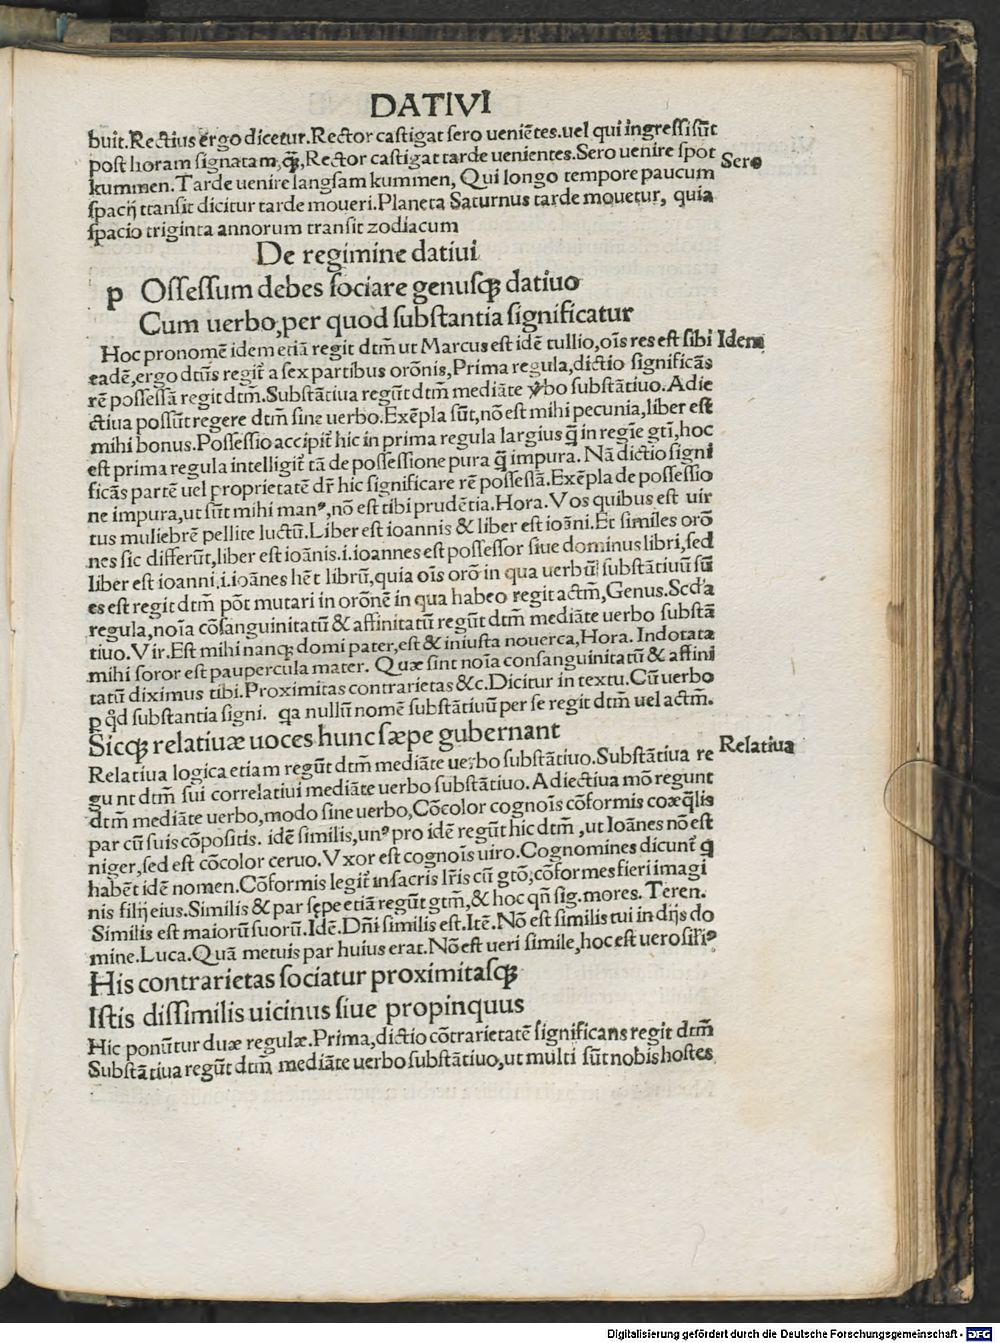 DATIVI
buit.Rectius ergo dicetur.Rector castigat sero ueniẽtes.uel qui ingressi sũt
post horam signatam,ꝙ̃,Rector castigat tarde uenientes.Sero uenire spot Sero
kummen.Tarde uenire langsam kummen, Qui longo tempore paucum
spacij transit dicitur tarde moueri.Planeta Saturnus tarde mouetur, quia
spacio triginta annorum transit zodiacum
De regimine datiui
p Ossessum debes sociare genusqꝫ datiuo
Cum uerbo,per quod substantia significatur
Hoc pronomẽ idem etiã regit dtm̃ ut Marcus est idẽ tullio,oĩs res est sibi Idem
eadẽ,ergo dtũs regit̃ a sex partibus orõnis,Prima regula,dictio significãs
rẽ possessã regit dtm̃.Substãtiua regũt dtm̃ mediãte ỹbo substãtiuo.Adie
ctiua possũt regere dtm̃ sine uerbo.Exẽpla sũt,nõ est mihi pecunia,liber est
mihi bonus.Possessio accipit̃ hic in prima regula largius q̃ in regĩe gtĩ,hoc
est prima regula intelligit̃ tã de possessione pura q̃ impura. Nã dictio signi
ficãs partẽ uel proprietatẽ dr̃ hic significare rẽ possessã.Exẽpla de possessio
ne impura,ut sũt mihi manꝰ,nõ est tibi prudẽtia.Hora.Vos quibus est uir
tus muliebrẽ pellite luctũ.Liber est ioannis & liber est ioãni.Et similes orõ
nes sic differũt,liber est ioãnis.i.ioannes est possessor siue dominus libri,sed
liber est ioanni.i.ioãnes hẽt librũ,quia oĩs orõ in qua uerbũ substãtiuũ sũ
es est regit dtm̃ põt mutari in orõnẽ in qua habeo regit actm̃,Genus.Scd'a
regula,noĩa cõsanguinitatũ & affinitatũ regũt dtm̃ mediãte uerbo substã
tiuo.Vir.Est mihi nanqꝫ domi pater,est & iniusta nouerca,Hora.Indotata
mihi soror est paupercula mater. Quæ sint noĩa consanguinitatũ & affini
tatũ diximus tibi.Proximitas contrarietas &c.Dicitur in textu.Cũ uerbo
ꝑ q̃d substantia signi. qa nullũ nomẽ substãtiuũ per se regit dtm̃ uel actm̃.
Sicqꝫ relatiuæ uoces hunc sæpe gubernant
Relatiua logica etiam regũt dtm̃ mediãte uerbo substãtiuo.Substãtiua re Relatiua
gunt dtm̃ sui correlatiui mediãte uerbo substãtiuo.Adiectiua mõ regunt
dtm̃ mediãte uerbo,modo sine uerbo,Cõcolor cognoĩs cõformis coæq̃lis
par cũ suis cõpositis. idẽ similis,unꝰ pro idẽ regũt hic dtm̃,ut Ioãnes nõ est
niger,sed est cõcolor ceruo.Vxor est cognoĩs uiro.Cognomines dicunt̃ q̃
habẽt idẽ nomen.Cõformis legit̃ in sacris lr̃is cũ gtõ,cõformes fieri imagi
nis filij eius.Similis & par sępe etiã regũt gtm̃,& hoc qñ sig.mores. Teren.
Similis est maiorũ suorũ.Idẽ.Dñi similis est.Itẽ.Nõ est similis tui in dijs do
mine.Luca.Quã metuis par huius erat.Nõ est ueri simile,hoc est uero sil̃iꝰ
His contrarietas sociatur proximitasqꝫ
Istis dissimilis uicinus siue propinquus
Hic ponũtur duæ regulæ.Prima,dictio cõtrarietatẽ significans regit dtm̃
Substãtiua regũt dtm̃ mediãte uerbo substãtiuo,ut multi sũt nobis hostes
Digitalisierung gefördert durch die Deutsche Forschungsgemeinschaft - DFG